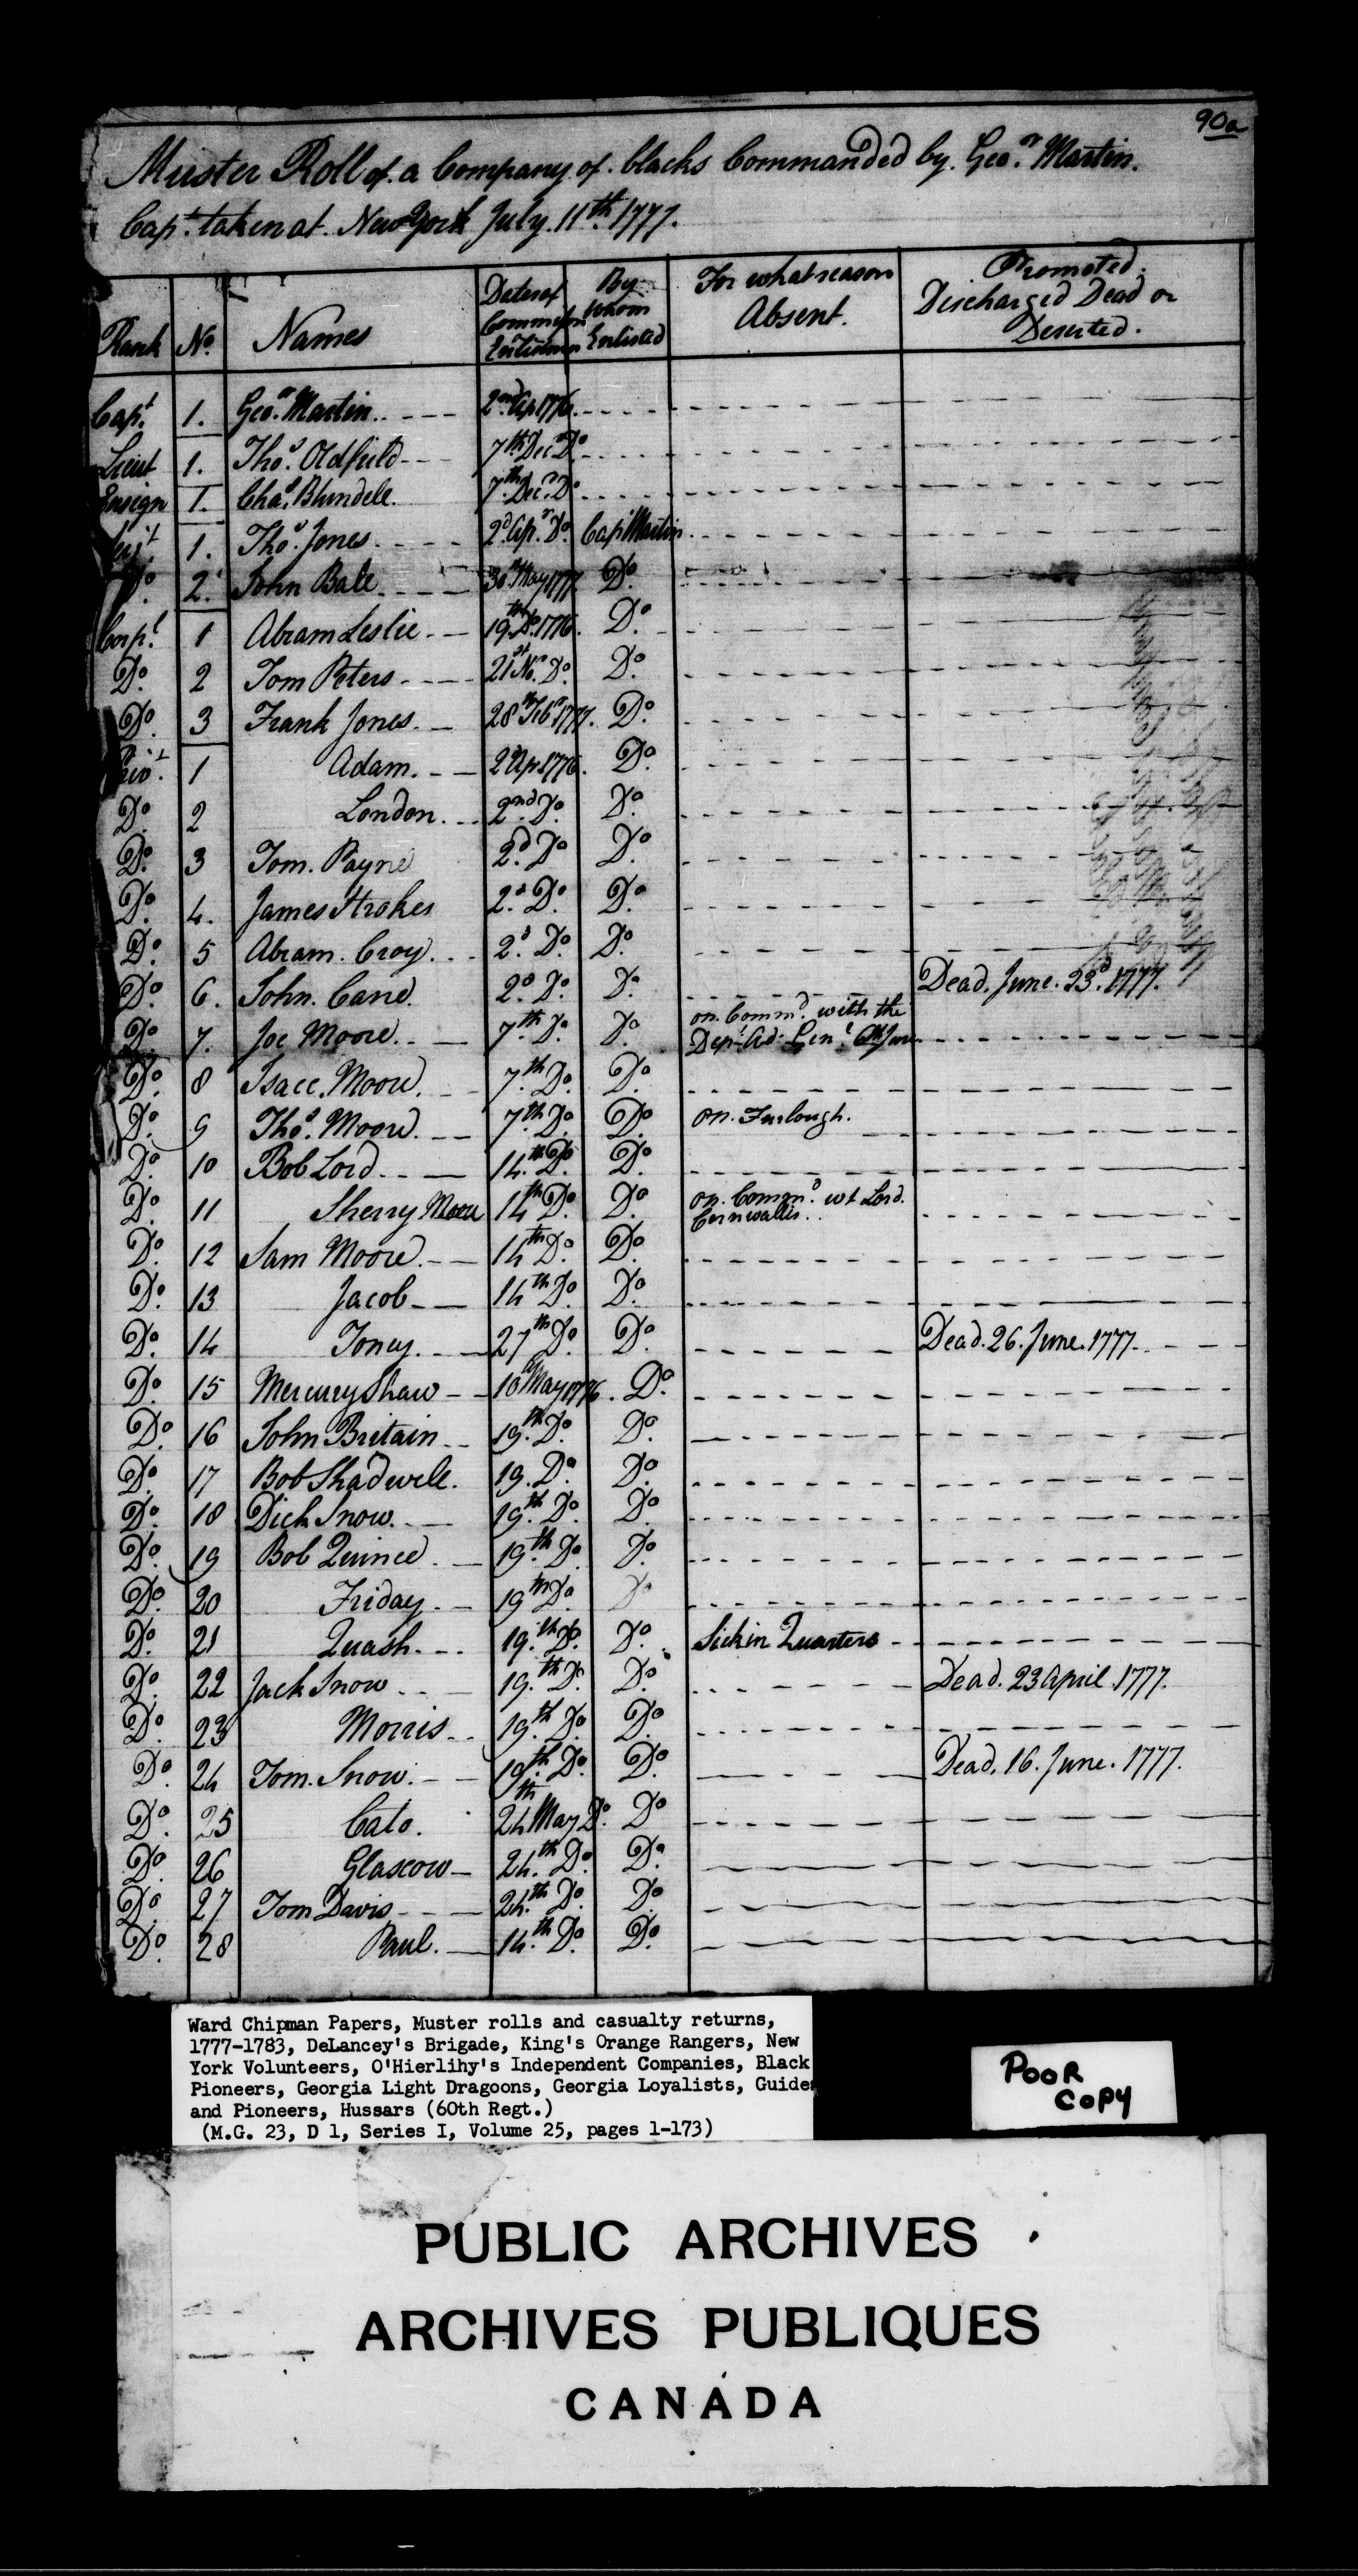 90a
Muster Roll of a Company of blacks Commanded by Geo.^e Martin.
Cap.^t taken at New York July 11^th. 1777.
Rank N^o. Names Dates of Commissn Enlistmen By Whom Enlisted For what reason Absent. Promoted. Discharged Dead or Deserted.
Cap.^t 1. Geo.^e Martin 2^nd Ap 1776
Lieut 1. Tho^s. Oldfield 7^th Dec^r D^o
Ensign 1. Cha^s. Blundell 7^th Dec^r. D^o
Serj^t 1. Tho^s. Jones 2^d. Ap^r. D^o. Cap^t Martin
D^o. 2. John Ball 30^th May 1777 D^o.
Corp^l. 1 Abram Leslie 19^th D^o. 1776. D^o.
D^o. 2 Tom Peters 21^st No. D^o. D^o.
D^o. 3 Frank Jones 28^th Feb^y 1777. D^o.
Priv^t. 1 Adam 2 Ap 1776. D^o.
D^o. 2 London 2^nd. D^o. D^o.
D^o. 3 Tom. Payne 2^d. D^o D^o.
D^o. 4. James Strokes 2^d. D^o. D^o.
D^o. 5 Abram. Croy. 2^d. D^o D^o.
D^o. 6. John. Cane. 2^d. D^o. D^o. Dead. June. 23^d. 1777.
D^o 7. Joe Moore. 7^th. D^o. D^o. on. Comm^d. with the Dep^t. Ad^t. Gen^l.
D^o. 8 Isacc. Moore. 7^th. D^o. D^o.
D^o. 9 Tho^s. Moore. 7^th. D^o. D^o. on. Furlough.
D^o. 10 Bob Lord 14^th. D^o. D^o.
D^o. 11 Sherry Moore 14^th D^o. D^o. on. Comm^d. wt Lord. Cornwallis.
D^o. 12 Sam Moore. 14^th D^o. D^o.
D^o. 13 Jacob 14^th D^o. D^o.
D^o. 14 Toney. 27^th D^o. D^o. Dead. 26. June. 1777.
D^o. 15 Mercury Shaw 10^th May 1776. D^o.
D^o. 16 John Britain 19^th. D^o. D^o.
D^o. 17 Bob Shadwell. 19. D^o. D^o.
D^o. 18 Dick Snow. 19^th. D^o. D^o.
D^o. 19 Bob Quince. 19^th. D^o. D^o.
D^o. 20 Friday. 19^th D^o. D^o
D^o. 21 Quash. 19^th. D^o. D^o. Sick in Quarters
D^o. 22 Jack Snow 19^th. D^o. D^o. Dead. 23 April. 1777.
D^o. 23 Morris 19^th. D^o. D^o.
D^o. 24 Tom. Snow. 19^th. D^o. D^o. Dead. 16. June. 1777.
D^o. 25 Cato. 24^th May D^o. D^o
D^o. 26 Glascow 24^th. D^o. D^o.
D^o. 27 Tom Davis 24^th. D^o. D^o.
D^o. 28 Paul. 14^th. D^o. D^o.
Ward Chipman Papers, Muster rolls and casualty returns,
1777-1783, DeLancey's Brigade, King's Orange Rangers, New
York Volunteers, O'Hierlihy's Independent Companies, Black
Pioneers, Georgia Light Dragoons, Georgia Loyalists, Guides
and Pioneers, Hussars (60th Regt.)
(M.G. 23, D 1, Series I, Volume 25, pages 1-173)
POOR
COPY
PUBLIC ARCHIVES
ARCHIVES PUBLIQUES
CANADA